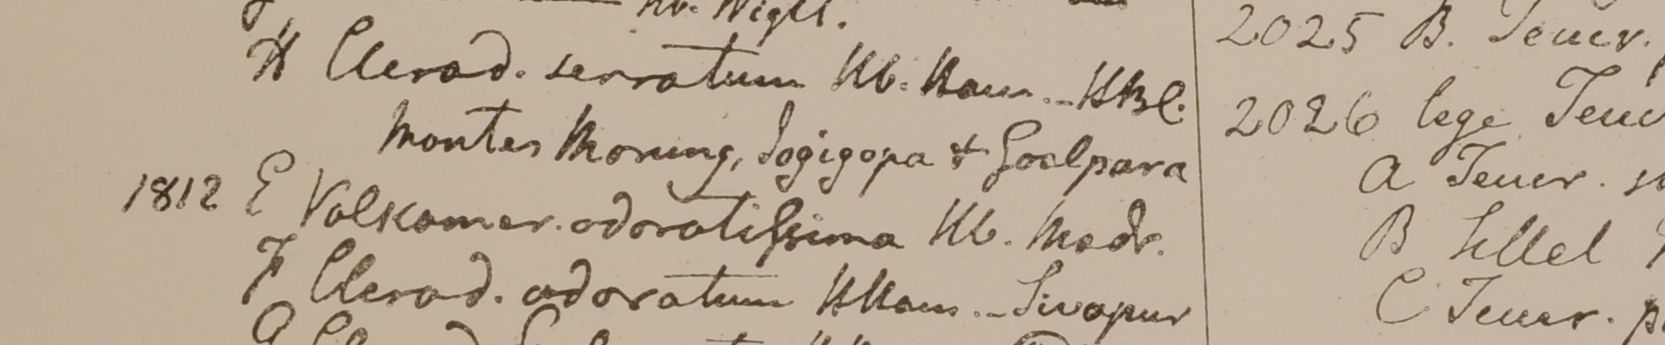 Hb. Wight.
H Clerod. serratum Hb. Ham. - HBC.
Montes Morung, Jogigopa & Goalpara
1812 E Volkamer. odoratissima Hb. Madr.
F Clerod. odoratum HHam. - Sivapur
G
2025 B. Teucr.
2026 lege Teuc
A Teucr.
B
C Teucr. p